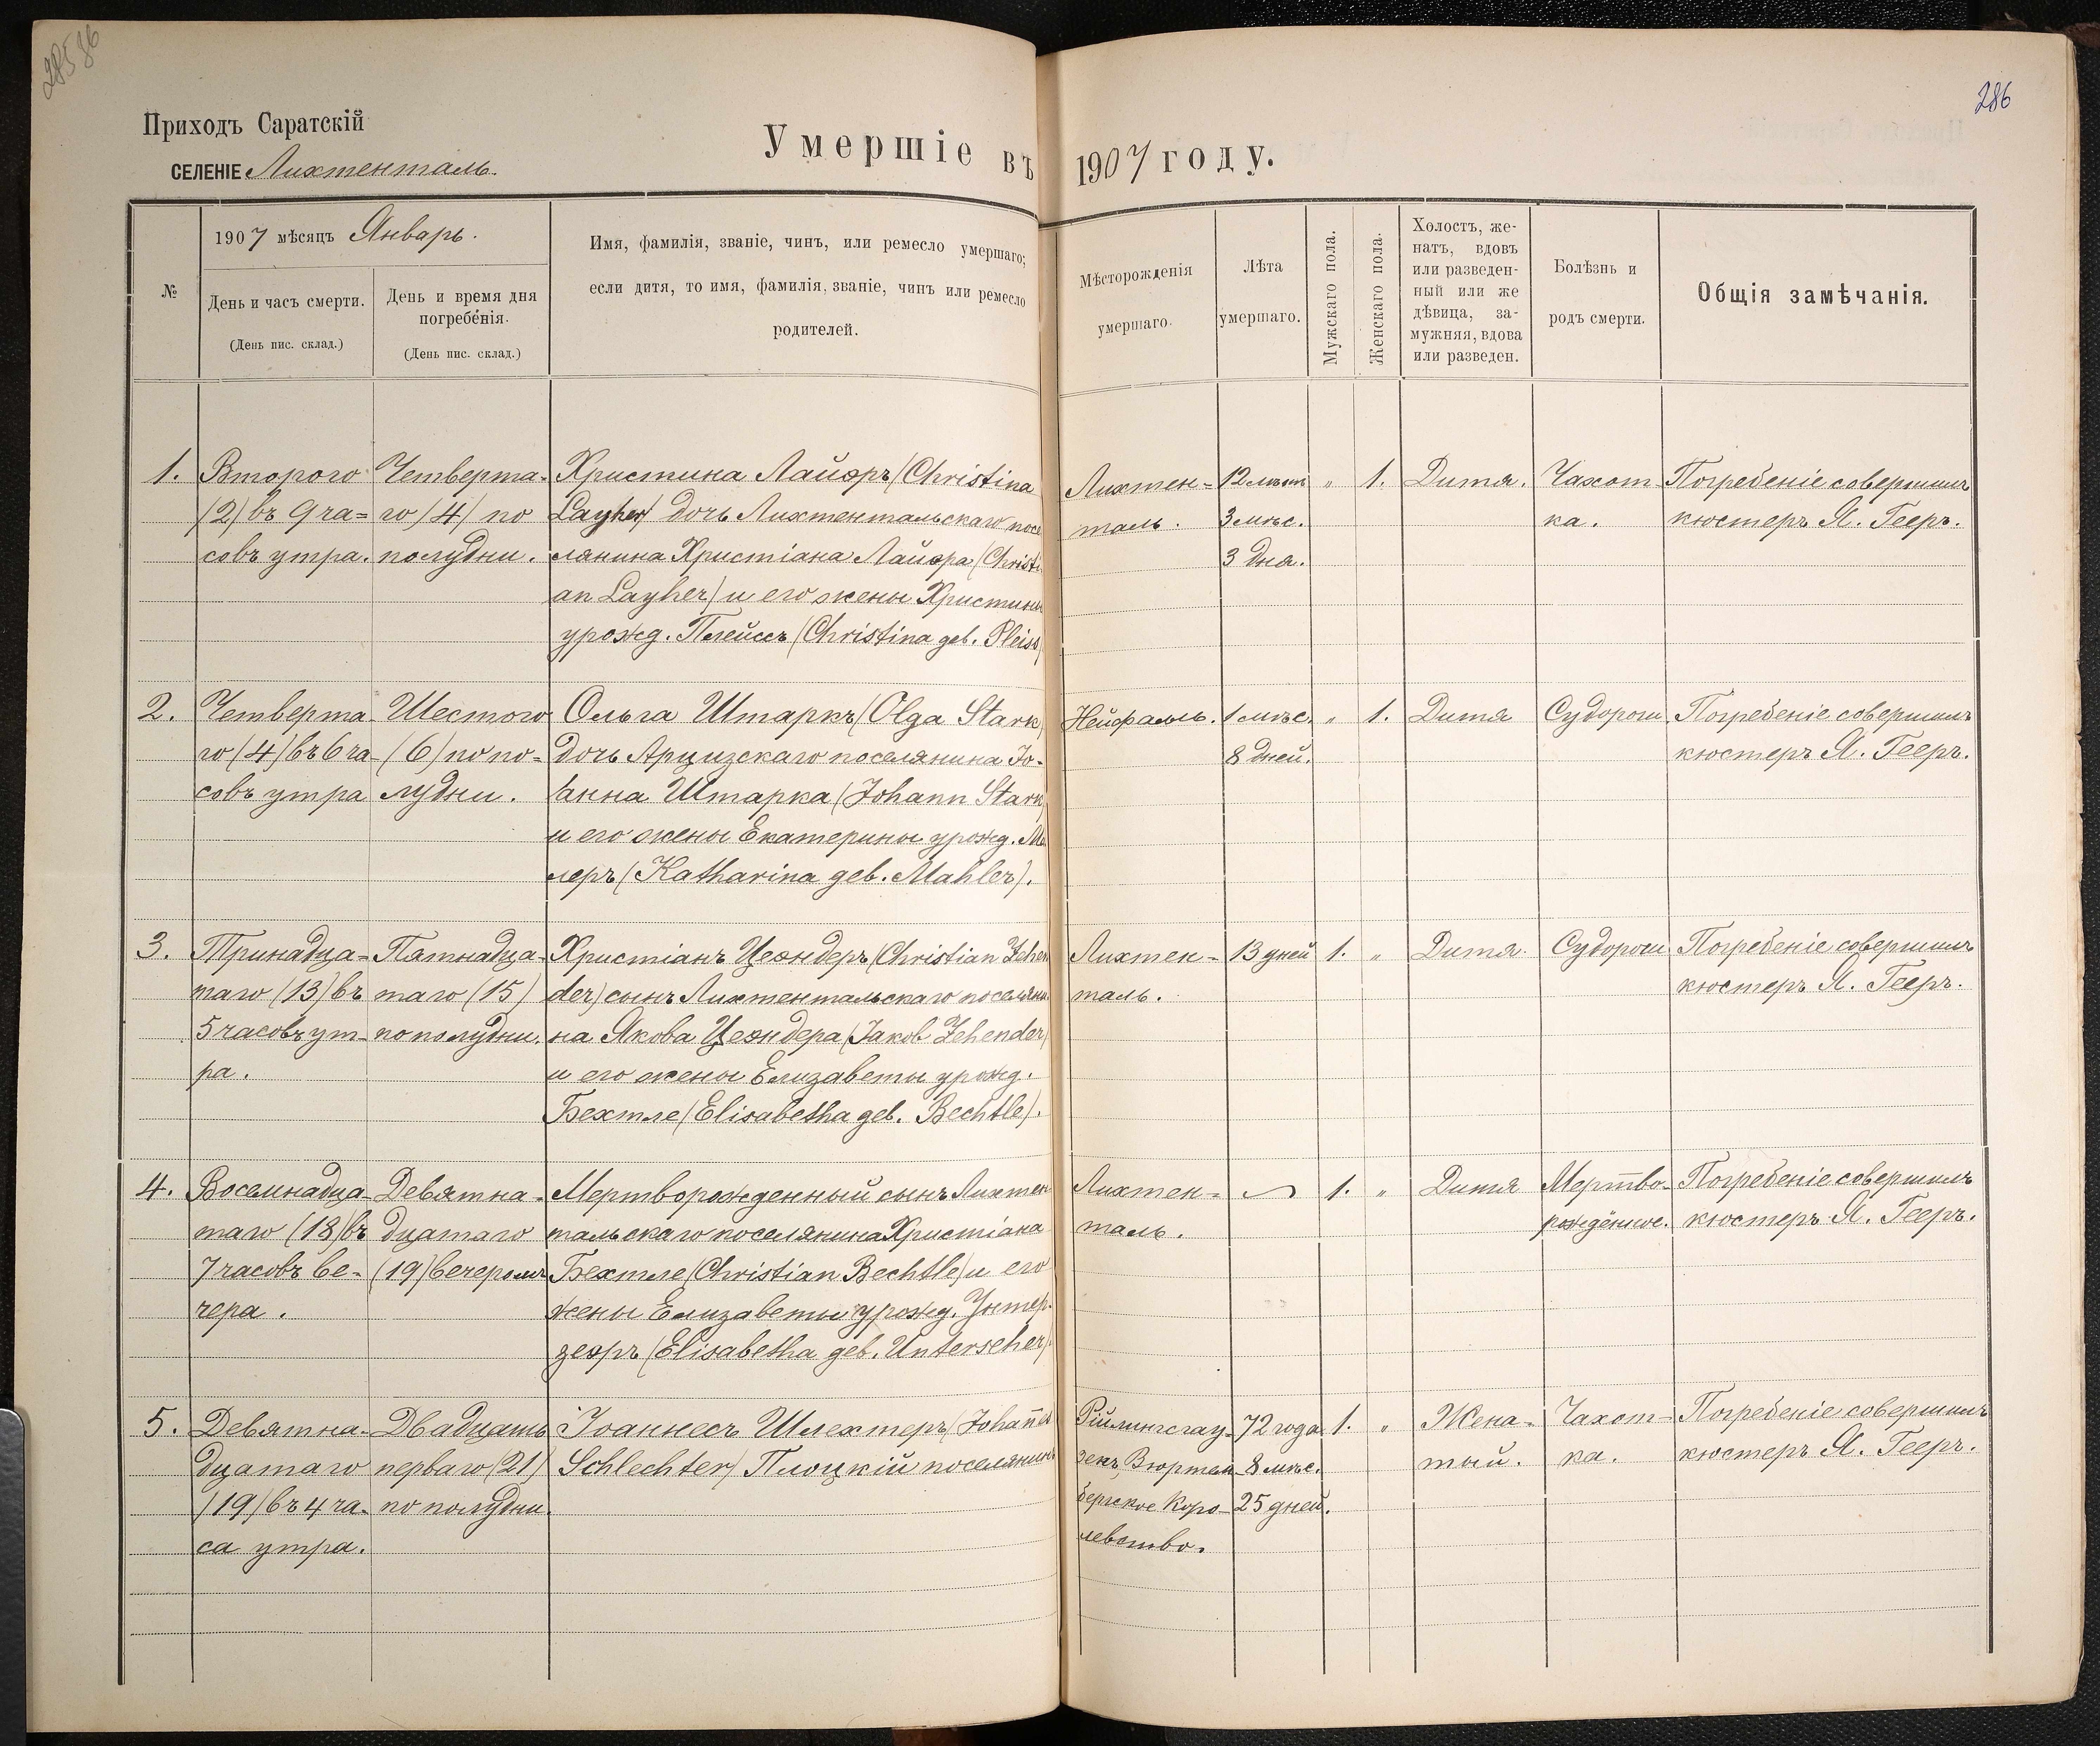 28586
286
Приходъ Саратскій
СЕЛЕНІЕ Лихтенталь.
Умершіе въ 1907 году.
№
1907 мѣсяцъ Январь.
День и часъ смерти.
(День пис. склад.)
День и время дня
погребенія.
(День пис. склад.)
Имя, фамилія, званіе, чинъ, или ремесло умершаго;
если дитя, то имя, фамилія, званіе, чинъ или ремесло
родителей.
Мѣсторожденія
умершаго.
Лѣта
умершаго.
Мужскаго пола.
Женскаго пола.
Холостъ, же-
натъ, вдовъ
или разведен-
ный или же
дѣвица, за-
мужняя, вдова
или разведен.
Болѣзнь и
родъ смерти.
Общія замѣчанія.
1.
Второго
(2) въ 9 ча=
совъ утра.
Четверта-
го (4) по
полудни.
Христина Лайэръ (Christina
Layher) дочь Лихтентальскаго посе
лянина Христіана Лайэра (Christi
an Layher) и его жены Христины
урожд. Плейссъ (Christina geb. Pleiss)
Лихтен=
таль.
12 лѣтъ
3 мѣс.
3 дня.
"
1.
Дитя.
Чахот
ка.
Погребеніе совершилъ
кюстеръ Я. Гееръ.
2.
Четверта-
го (4) въ 6 ча-
совъ утра
Шестого
(6) по по=
лудни.
Ольга Штаркъ (Olga Stark)
дочь Арцизскаго поселянина Іо-
анна Штарка (Johann Stark)
и его жены Екатерины урожд. Ма
леръ (Katharina geb. Mahler).
Нейфалль.
1 мѣс.
8 дней.
"
1.
Дитя
Судороги
Погребеніе совершилъ
кюстеръ Я. Гееръ.
3.
Тринадца=
таго (13) въ
5 часовъ ут-
ра.
Пятнадца-
таго (15)
по полудни.
Христіанъ Цеэндеръ (Christian Zehen
der) сынъ Лихтентальскаго поселяни
на Якова Цеэндера (Jakob Zehender)
и его жены Елизаветы урожд.
Бехтле (Elisabetha geb. Bechtle).
Лихтен=
таль.
13 дней
1.
"
Дитя.
Судороги
Погребеніе совершилъ
кюстеръ Я. Гееръ.
4.
Восемнадца-
таго (18) въ
7 часовъ ве-
чера.
Девятна-
дцатаго
(19) вечеромъ
Мертворожденный сынъ Лихтен
тальскаго поселянина Христіана
Бехтле (Christian Bechtle) и его
жены Елизаветы урожд. Унтер-
зеэръ (Elisabetha geb. Unterseher).
Лихтен=
таль.
1.
"
Дитя
Мертво-
рожденіе.
Погребеніе совершилъ
кюстеръ Я. Гееръ.
5.
Девятна-
дцатаго
(19) въ 4 ча-
са утра.
Двадцать
перваго (21)
по полудни.
Іоаннесъ Шлехтеръ (Johañes
Schlechter) Плоцкій поселянинъ
Вюртем
бергское Коро-
левство.
72 года
8 мѣс.
25 дней.
1.
"
Жена-
тый.
Чахот-
ка.
Погребеніе совершилъ
кюстеръ Я. Гееръ.